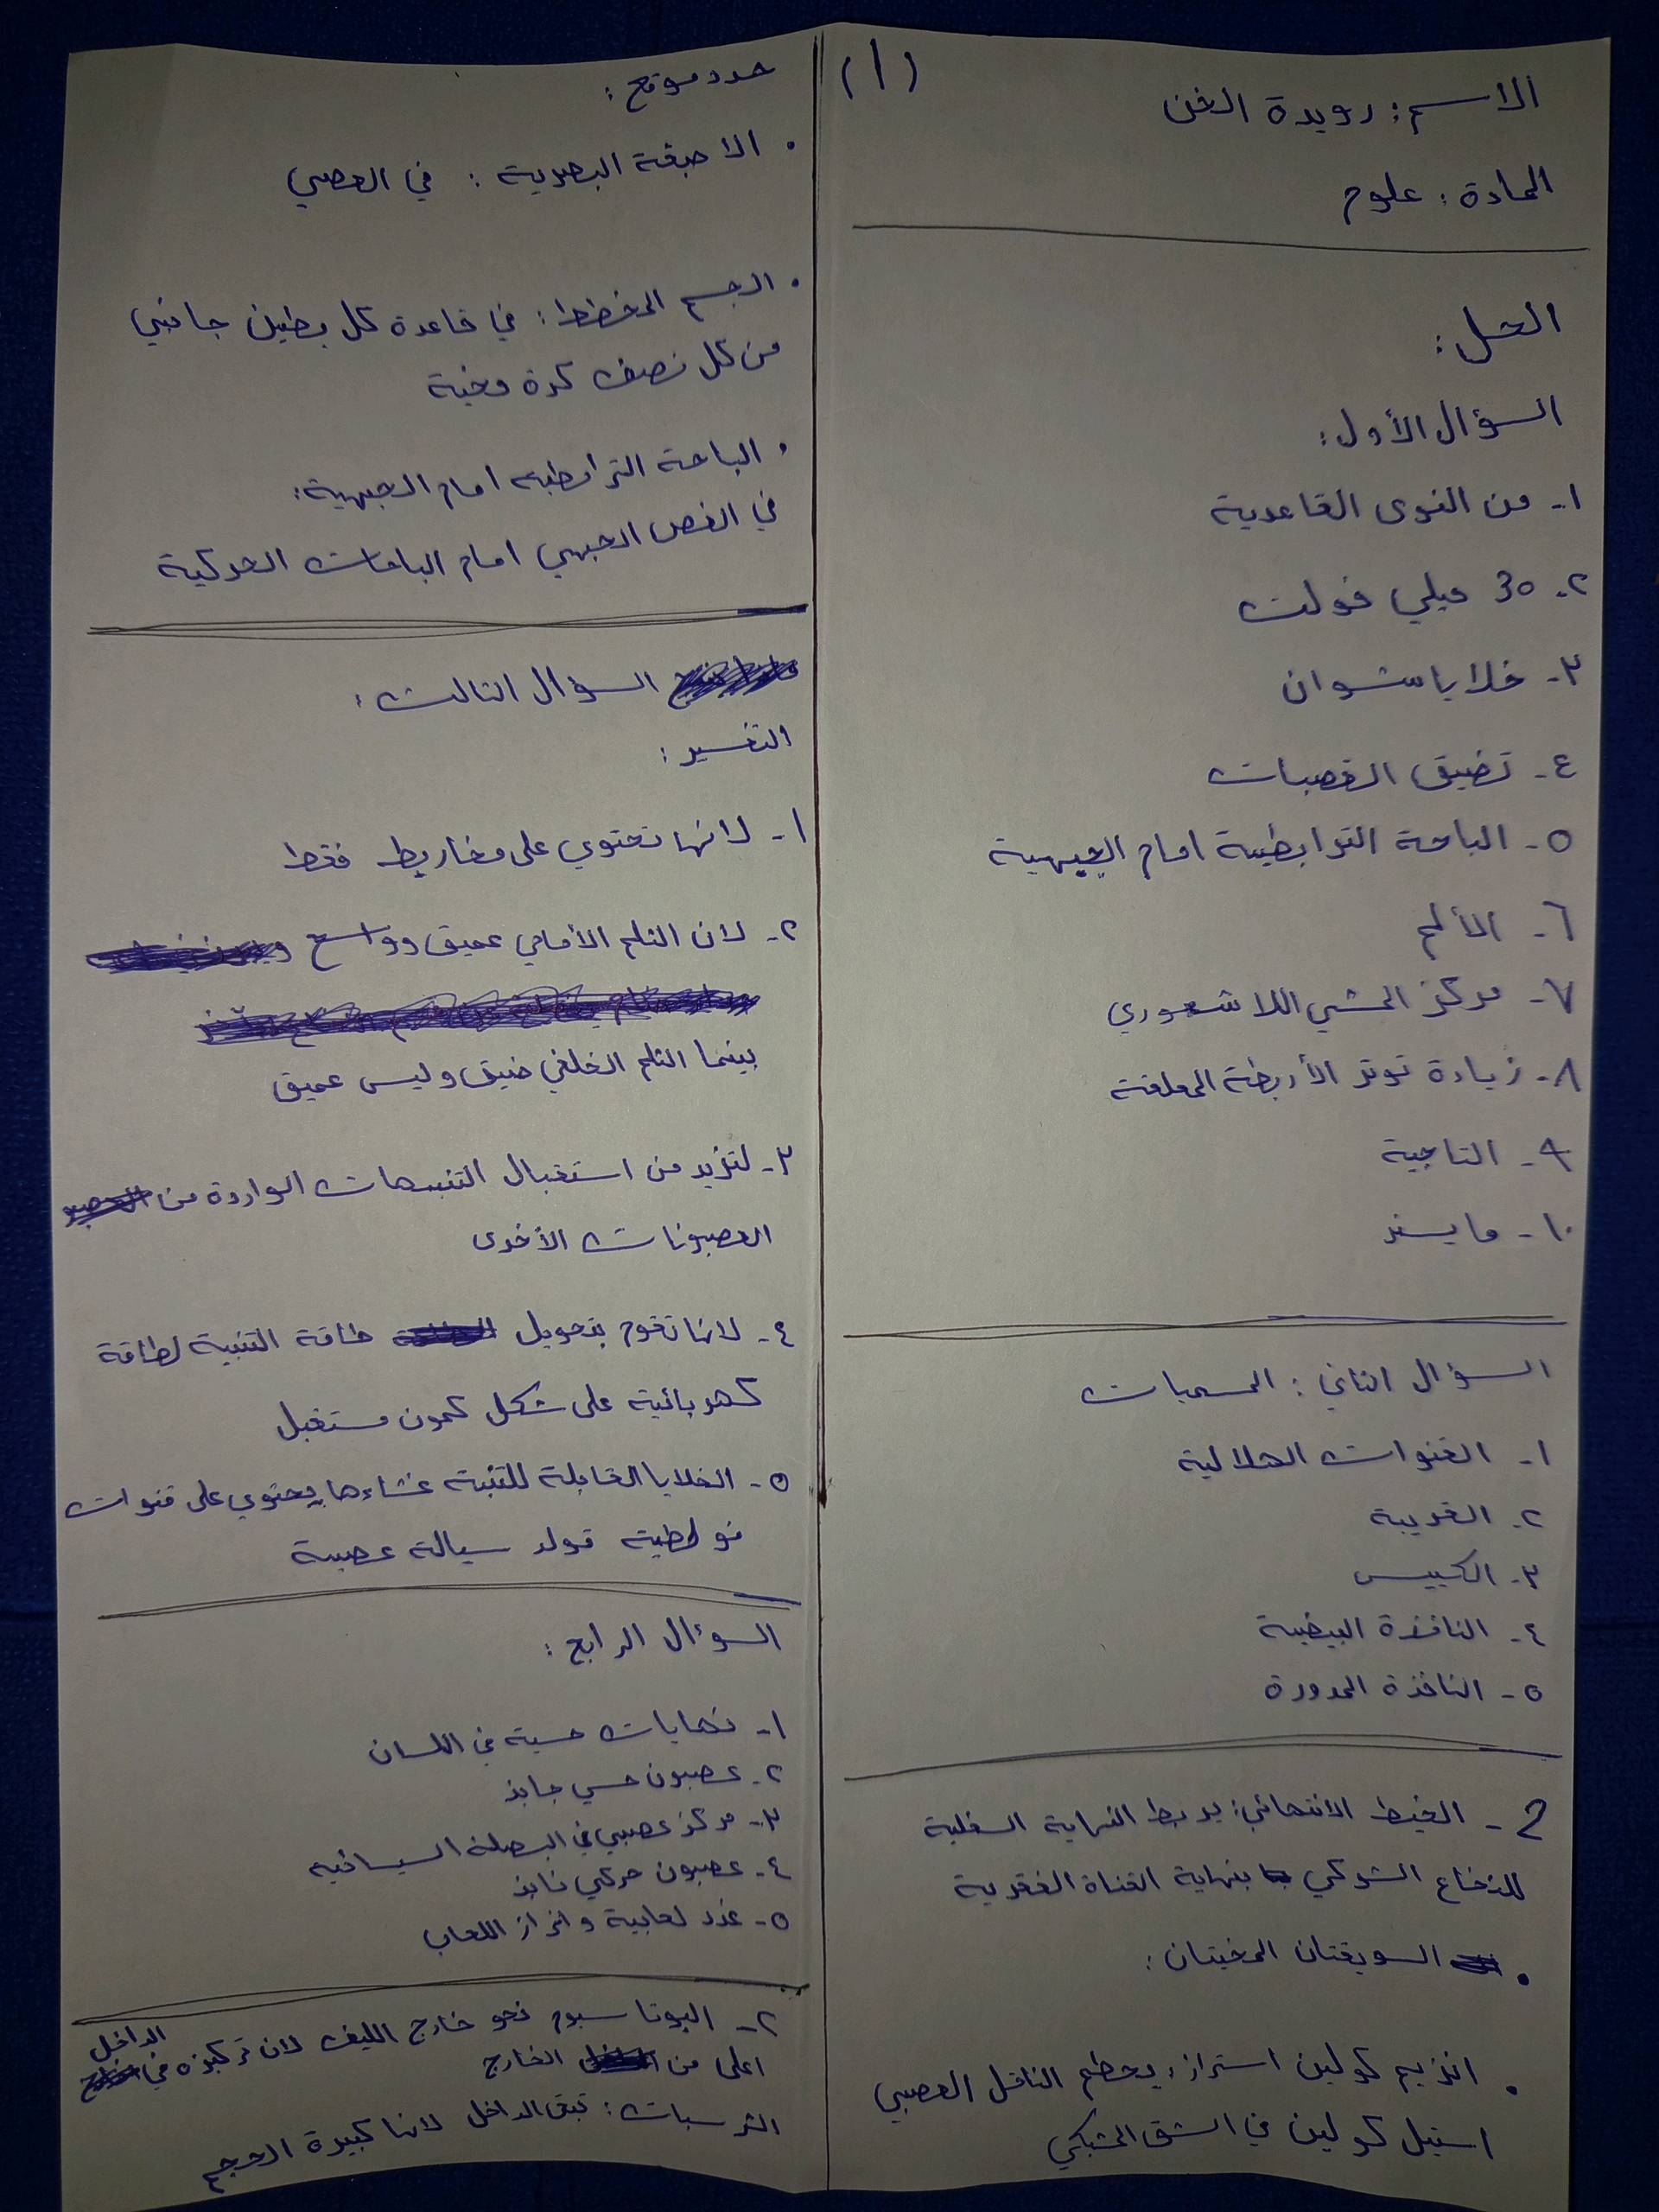 (١)
الاسم: رويدة الخن
المادة: علوم
الحل:
السؤال الأول:
١- من النوى القاعدية
٢- 30 ميلي فولت
٣- خلايا شوان
٤- تضيق القصبات
٥- الباحة الترابطية امام الجبهية
٦- الألم
٧- مركز المشي اللا شعوري
٨- زيادة توتر الأربطة المعلقة
٩- التاجية
١٠- مايسنر
السؤال الثاني: المسميات
١- القنوات الهلالية
٢- القريبة
٣- الكييس
٤- النافذة البيضية
٥- النافذة المدورة
2- الخيط الانتهائي: يربط النهاية السفلية
للنخاع الشوكي بنهاية القناة الفقرية
• السويقتان المخيتان:
• انزيم كولين استراز: يحطم الناقل العصبي
استيل كولين في الشق المشبكي
حدد موقع:
• الاصبغة البصرية: في العصي
• الجسم المخطط: في قاعدة كل بطين جانبي
من كل نصف كرة مخية
• الباحة الترابطية امام الجبهية:
في الفص الجبهي امام الباحات الحركية
السؤال الثالث:
التفسير:
١- لانها تحتوي على مخاريط فقط
٢- لان الثلم الأمامي عميق وواسع
بينما الثلم الخلفي ضيق وليس عميق
٣- لتزيد من استقبال التنبيهات الواردة من
العصبونات الأخرى
٤- لانها تقوم بتحويل طاقة التنبية لطاقة
كهربائية على شكل كمون مستقبل
٥- الخلايا القابلة للتنبة غشاءها يحتوي على قنوات
فولطية تولد سيالة عصبية
السوءال الرابع:
١- نهايات حسية في اللسان
٢- عصبون حسي جابذ
٣- مركز عصبي في البصلة السيسائية
٤- عصبون حركي نابذ
٥- غدد لعابية وافراز اللعاب
٢- البوتاسيوم نحو خارج الليف لان تركيزه في الداخل
اعلى من الخارج
الشرسبات: تبق الداخل لانها كبيرة الحجم